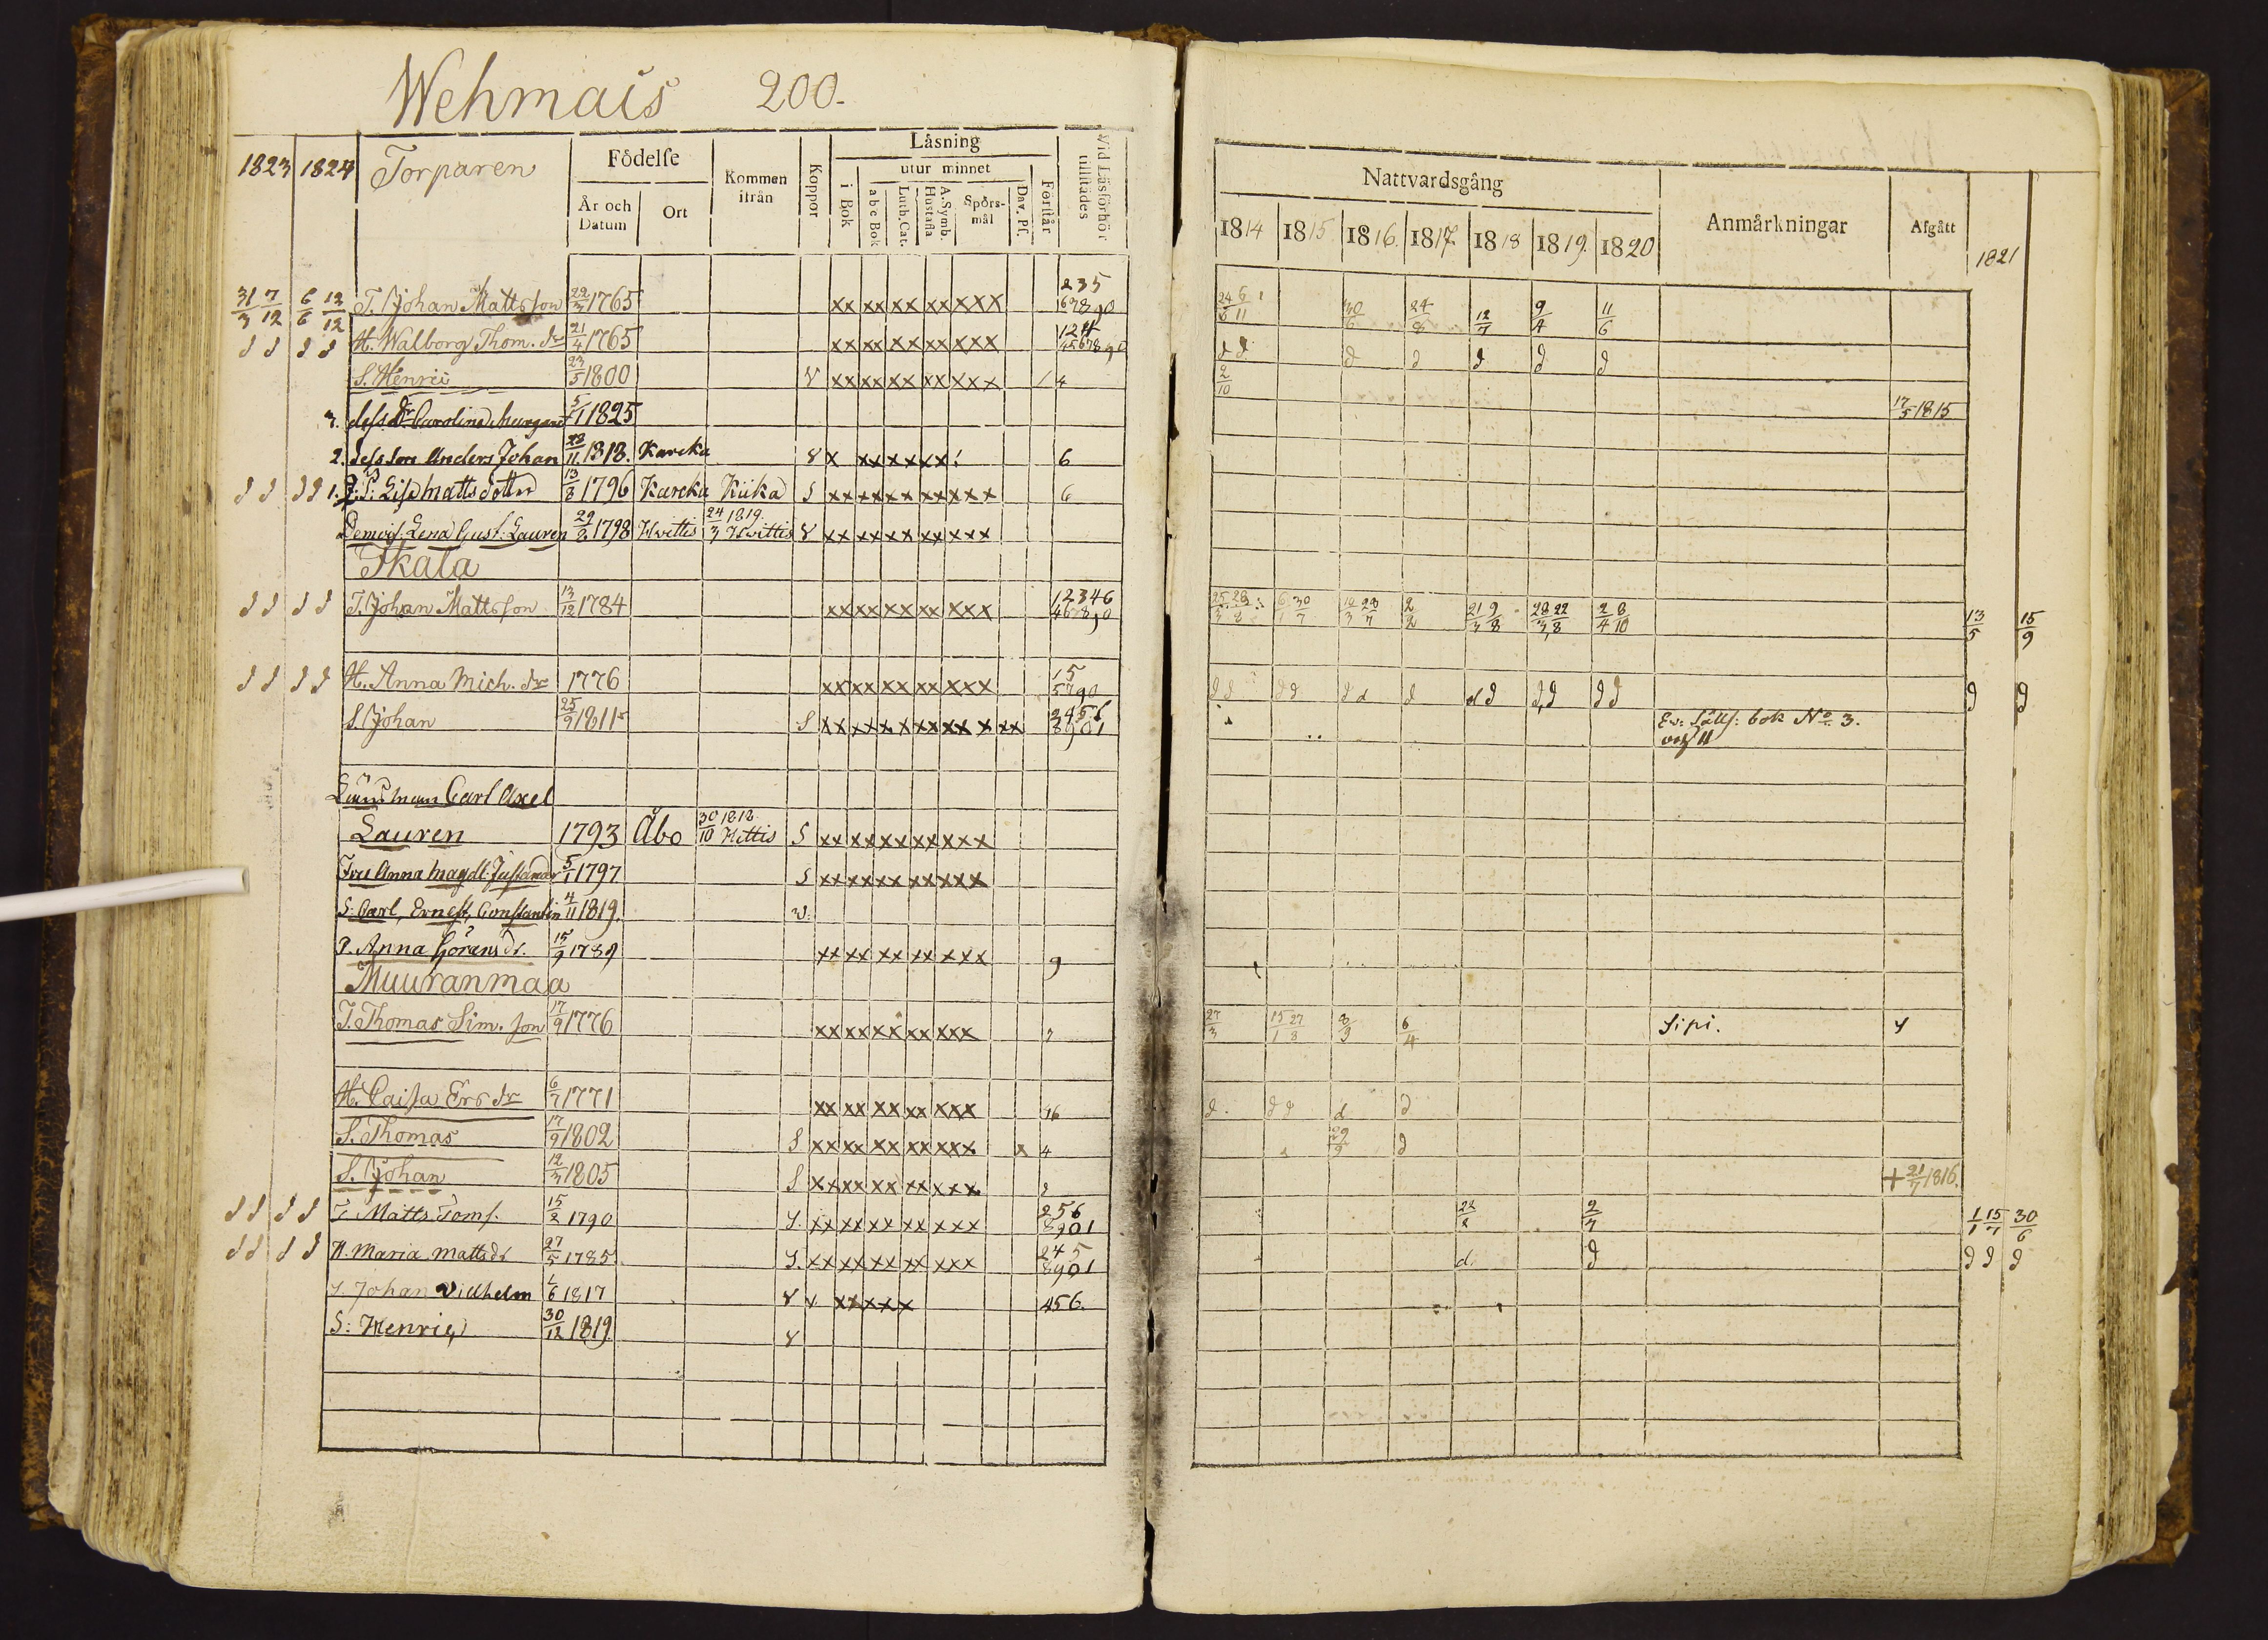 Wehmais 200.
1823 1824 Torparen Födelse Kommen ifrån Koppor Läsning Wid Läsförhör tillstädes
År och Datum Ort i Bok utur minnet Förstår
a b c Bok Luth. Cat. A. Symb. Hustafla Spörsmål Dav. Ps.
Nattvardsgång Anmärkningar Afgått
1814 1815 1816. 1817 1818 1819. 1820 1821
31/3 7/12 6/6 12/12 T. Johan Mattsson 22/3 1765 xx xx xx xx xxx 235 67890 24/6 30/6 24/8 12/7 9/4 11/6
d d d d H. Walborg Thom. dr 21/4 1765 xx xx xx xx xxx 124 4567890 d d d d d d d
S. Henric 23/5 1800 v xx xx xx xx xxx / 4 2/10
3. dess dr Carolina Margaret 5/1 1825 17/5 1815
2. dess son Anders Johan 28/11 1818. Karcka v x xx xx xx 6
d d d d 1. Lisa Matts dotter 13/8 1796 Karcka Kiika S xx xx xx xx xxx 6
Demois: Lena Gust: Lauren 29/8 1798 Hvittis 24/3 1819 Hvittis v xx xx xx xx xxx
Skala
d d d d T. Johan Mattsson 13/12 1784 xx xx xx xx xxx 12346 467890 25/3 28/8 6/1 30/7 2/2 21/3 9/8 28/3 22/8 2/4 8/10 13/5 15/9
d d d d H. Anna Mich. dr 1776 xx xx xx xx xxx 15 5790 d d d d d d d d d d d d d d d
S. Johan 25/9 1811 S xx xx xx xx xx x xx 3456 8901 No 3.
Länsman Carl Axel
Lauren 1793 Åbo 30/10 1818 Hvittis S xx xx xx xx xxx
Fru Anna Magdl: 5/1 1797 S xx xx xx xx xxx
S: Carl, Ernest, Constantin 4/11 1819. v.
P. Anna Görans dr. 15/9 1789 xx xx xx xx xxx 9
Muuranmaa
T. Thomas Sim. son 17/9 1776 xx xx xx xx xxx 27/3 15/1 27/8 8/9 6/4 Sipi.
H. Caisa Ers dr 6/7 1771 xx xx xx xx xxx 16 d. d d d d
S. Thomas 17/9 1802 S xx xx xx xx xxx x 4 29/9 d
S. Johan 12/3 1805 S xx xx xx xx xxx + 21/7 1816.
d d d d T Matts Toms. 15/2 1790 S. xx xx xx xx xxx 256 8901 22/2 2/7 1/1 15/7 30/6
d d d d H. Maria Matts dr 27/5 1785 S. xx xx xx xx xxx 245 8901 d. d d d d
S Johan Vilhelm 1/6 1817 v x xx xxx 456.
S: Henric 30/12 1819. v